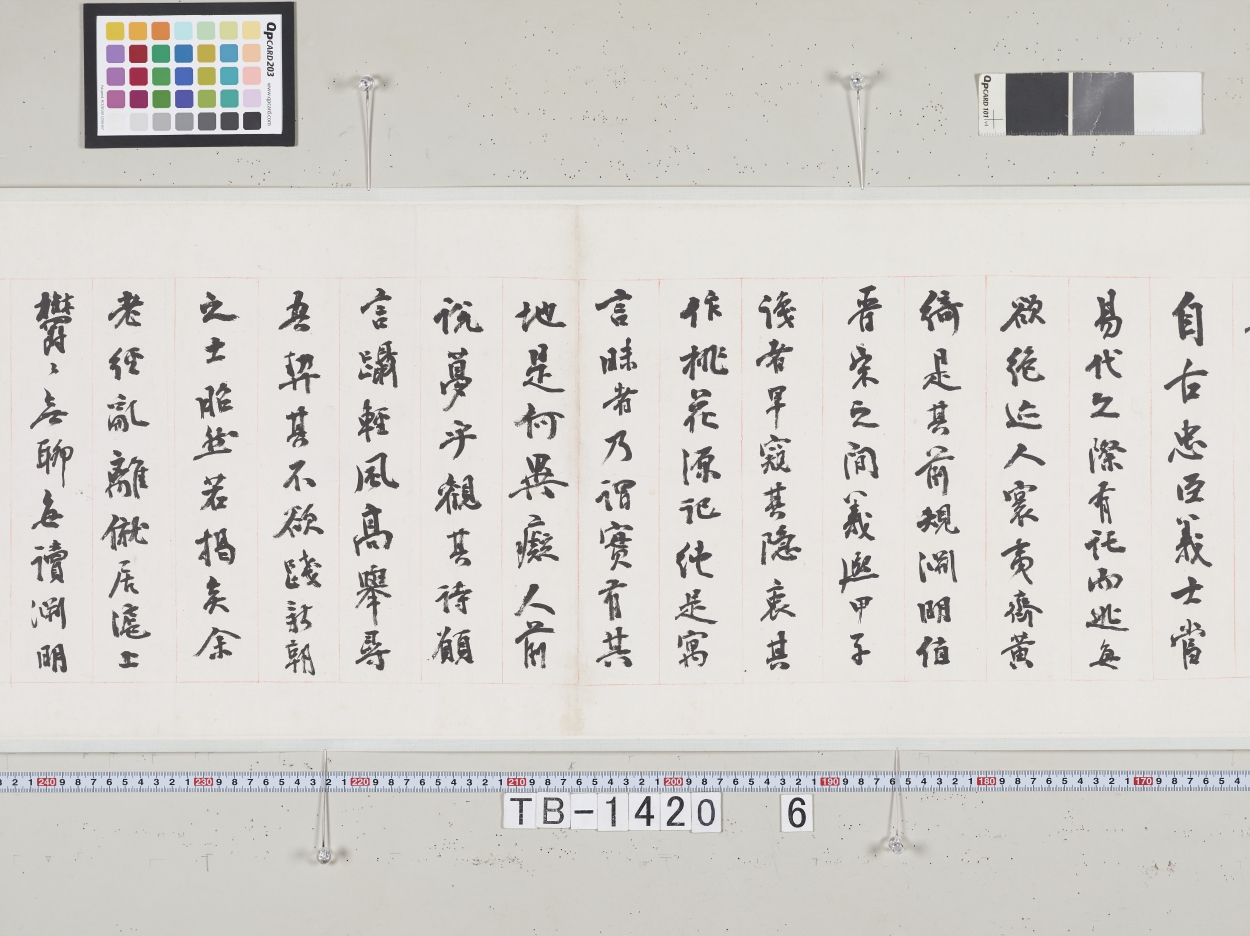 自古忠臣義士當
易代之際有託而逃每
欲絶迹人寰夷齊黄
綺是其前規淵明值
晋宋之間義熙甲子
後者早窺其隱衷其
作桃花源記純是寓
言昧者乃謂實有其
地是何異癡人前
說夢乎觀其詩願
言躡輕風高舉尋
吾契其不欲踐新朝
之士昭然若揭矣余
老經亂離僦居滬上
鬱〻無聊每讀淵明
QpCARD 203
www.qpcard.com
QpCARD 101
TB-1420 6
240 230 220 210 200 190 180 170